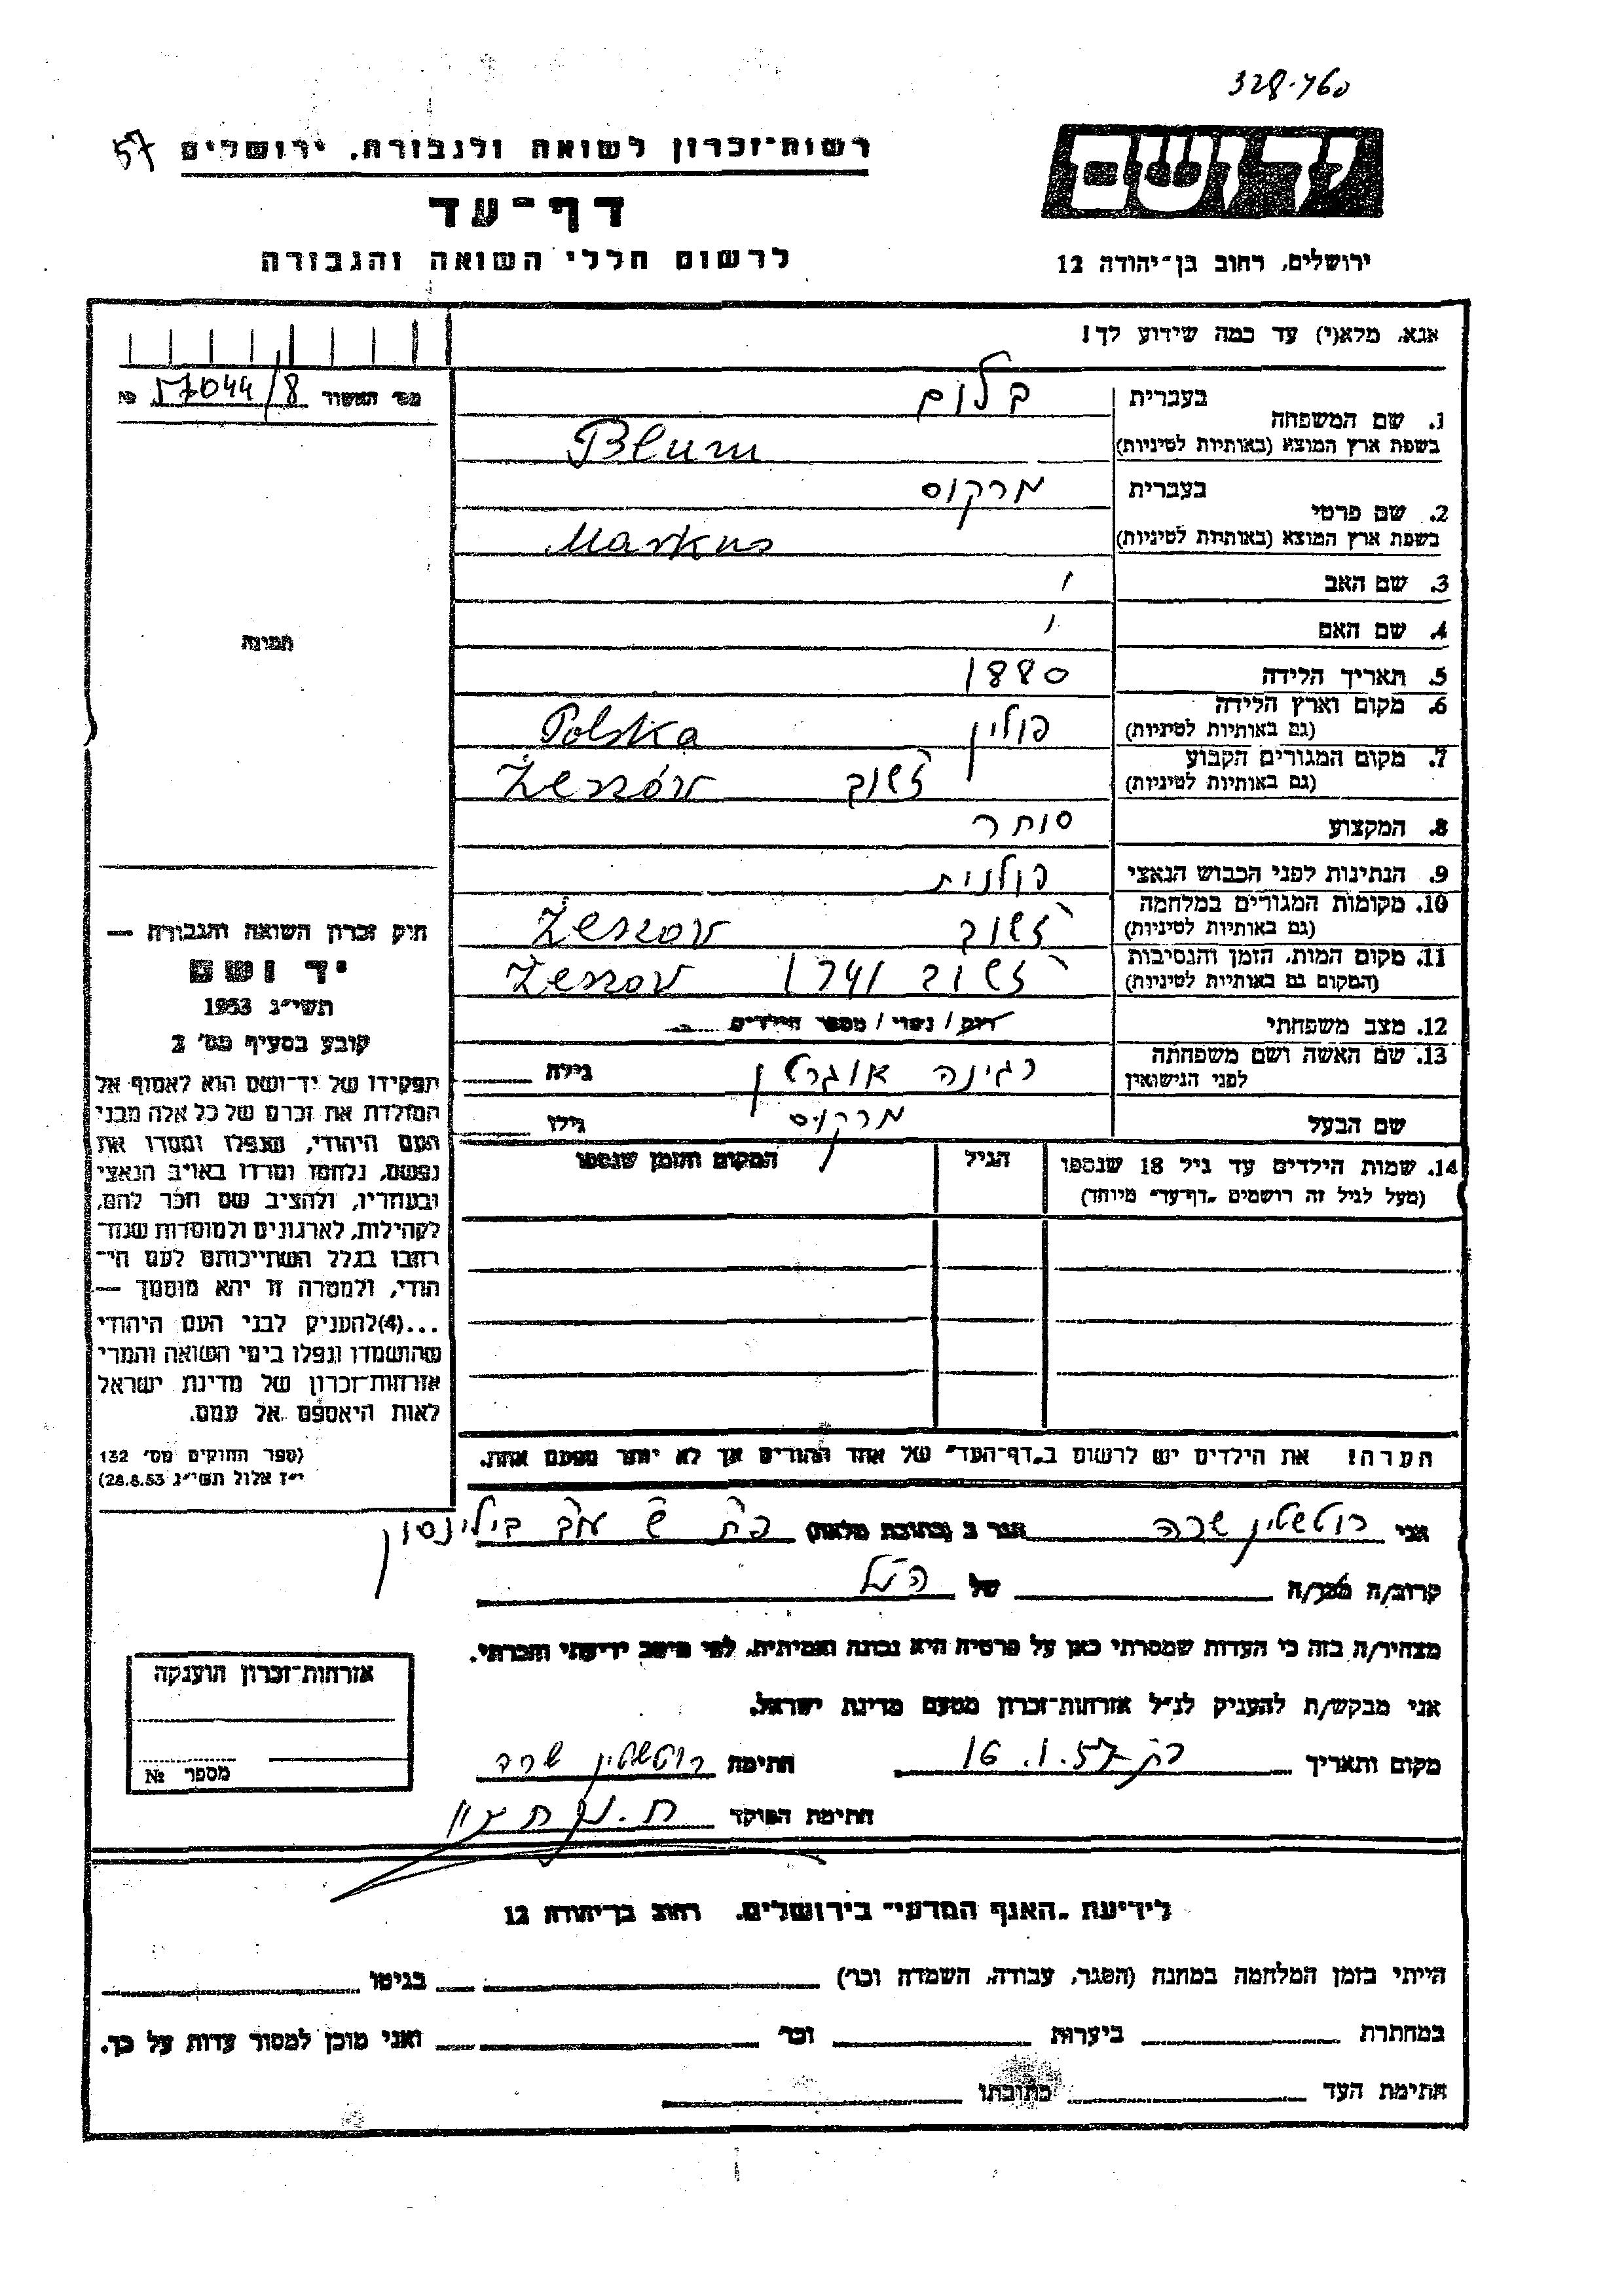 328.460
57
רשות־זכרון לשואה ולגבורה, ירושלים
דף־עד
לרשום חללי השואה והגבורה
יד ושם
ירושלים, רחוב בן־יהודה 12
אנא, מלא(י) עד כמה שידוע לך!
מס׳ האשור 57044/8 №
1. שם המשפחה בעברית בלום
בשפת ארץ המוצא (באותיות לטיניות) Blum
2. שם פרטי בעברית מרקוס
בשפת ארץ המוצא (באותיות לטיניות) Markus
3. שם האב
4. שם האם
5. תאריך הלידה 1880
6. מקום וארץ הלידה (גם באותיות לטיניות) פולין Polska
7. מקום המגורים הקבוע (גם באותיות לטיניות) ז'שוב Żeszów
8. המקצוע סוחר
9. הנתינות לפני הכבוש הנאצי פולנית
10. מקומות המגורים במלחמה (גם באותיות לטיניות) ז'שוב Żeszov
11. מקום המות, הזמן והנסיבות (המקום גם באותיות לטיניות) ז'שוב Żeszov
12. מצב משפחתי רווק / נשוי / מספר הילדים
13. שם האשה ושם משפחתה לפני הנישואין רגינה גילה
שם הבעל מרקוס גילו
14. שמות הילדים עד גיל 18 שנספו
(מעל לגיל זה רושמים „דף־עד״ מיוחד)
הגיל
המקום והזמן שנספו
הערה! את הילדים יש לרשום ב„דף־העד״ של אחד ההורים אך לא יותר מפעם אחת.
תמונה
חוק זכרון השואה והגבורה —
יד ושם
תשי״ג 1953
קובע בסעיף מס׳ 2
תפקידו של יד־ושם הוא לאסוף אל
המולדת את זכרם של כל אלה מבני
העם היהודי, שנפלו ומסרו את
נפשם, נלחמו ומרדו באויב הנאצי
ובעוזריו, ולהציב שם וזכר להם,
לקהילות, לארגונים ולמוסדות שנח־
רבו בגלל השתייכותם לעם הי־
הודי, ולמטרה זו יהא מוסמך —
...(4)להעניק לבני העם היהודי
שהושמדו ונפלו בימי השואה והמרי
אזרחות־זכרון של מדינת ישראל
לאות היאספם אל עמם.
(ספר החוקים מס׳ 132
י״ז אלול תשי״ג 28.8.53)
אני רוטשטין שרה הגר ב (כתובת מלאה) בילינסון
קרוב/ה מכר/ה של הנ"ל
מצהיר/ה בזה כי העדות שמסרתי כאן על פרטיה היא נכונה ואמיתית, לפי מיטב ידיעתי והכרתי.
אני מבקש/ת להעניק לנ״ל אזרחות־זכרון מטעם מדינת ישראל.
מקום ותאריך 16.1.57 חתימה רוטשטין שרה
חתימת הפוקד
אזרחות־זכרון הוענקה
מספר №
לידיעת „האגף המדעי״ בירושלים, רחוב בן־יהודה 12
הייתי בזמן המלחמה במחנה (הסגר, עבודה, השמדה וכו׳) בגיטו
במחתרת ביערות וכו׳ ואני מוכן למסור עדות על כך.
חתימת העד כתובתו